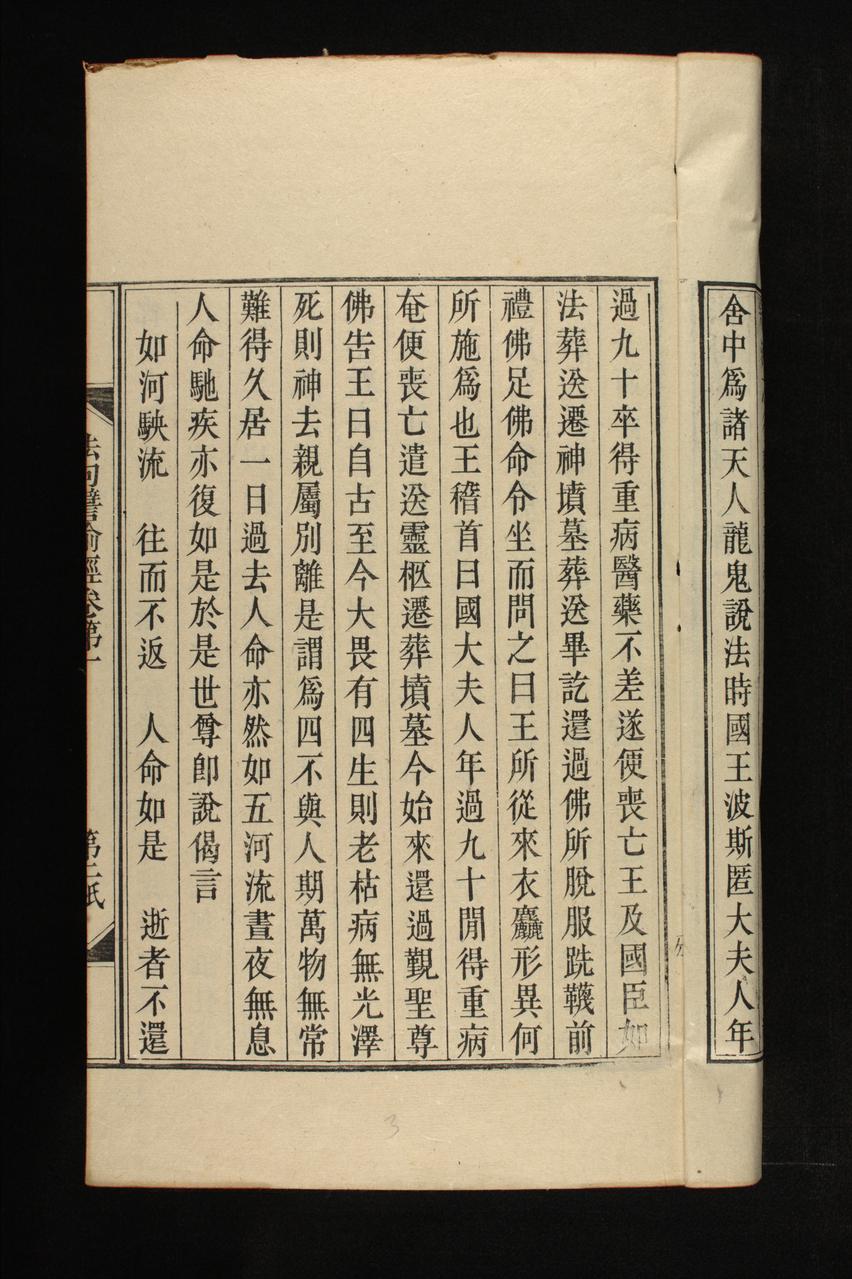 舍中爲諸天人龍鬼說法時國王波斯匿大夫人年
過九十卒得重病醫藥不差遂便喪亡王及國臣如
法葬送遷神墳墓葬送畢訖還過佛所脫服跣韈前
禮佛足佛命令坐而問之曰王所從來衣麤形異何
所施爲也王稽首曰國大夫人年過九十閒得重病
奄便喪亡遣送靈柩遷葬墳墓今始來還過覲聖尊
佛告王曰自古至今大畏有四生則老枯病無光澤
死則神去親屬別離是謂爲四不與人期萬物無常
難得久居一日過去人命亦然如五河流晝夜無息
人命馳疾亦復如是於是世尊卽說偈言
如河駛流 往而不返 人命如是 逝者不還
法句譬喻經卷第一 第二紙
3